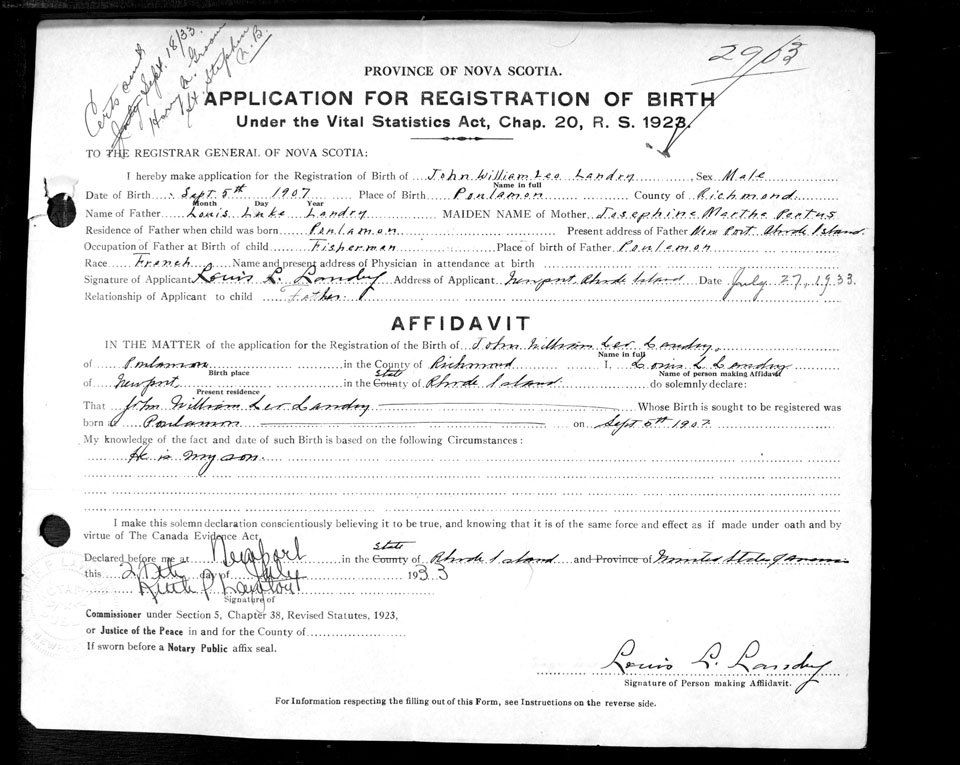 Certs sent
Sept. 18/33.
Harry A. Groom
St. Stephen
N.B.
2903
PROVINCE OF NOVA SCOTIA.
APPLICATION FOR REGISTRATION OF BIRTH
Under the Vital Statistics Act, Chap. 20, R. S. 1923.
TO THE REGISTRAR GENERAL OF NOVA SCOTIA:
I hereby make application for the Registration of Birth of John William Leo Landry, Sex Male
Name in full
Date of Birth Sept. 5th 1907 Place of Birth Poulamon County of Richmond
Month Day Year
Name of Father Louis Luke Landry MAIDEN NAME of Mother Josephine Martha Poetus
Residence of Father when child was born Poulamon Present address of Father New Port Rhode Island
Occupation of Father at Birth of child Fisherman Place of birth of Father Poulamon
Race French Name and present address of Physician in attendance at birth
Signature of Applicant Louis L. Landry Address of Applicant Newport, Rhode Island Date July 27, 1933.
Relationship of Applicant to child Father.
AFFIDAVIT
IN THE MATTER of the application for the Registration of the Birth of John William Leo Landry,
Name in full
of Poulamon in the County of Richmond I, Louis L. Landry
Birth place Name of person making Affidavit
of Newport in the County State of Rhode Island. do solemnly declare:
Present residence
That John William Leo Landry Whose Birth is sought to be registered was
born at Poulamon on Sept 5th 1907
My knowledge of the fact and date of such Birth is based on the following Circumstances:
He is my son.
I make this solemn declaration conscientiously believing it to be true, and knowing that it is of the same force and effect as if made under oath and by
virtue of The Canada Evidence Act.
Declared before me at Newport in the County State of Rhode Island and Province of United States of America
this 28th day of July 1933
Ruth P.
Signature of
Commissioner under Section 5, Chapter 38, Revised Statutes, 1923,
or Justice of the Peace in and for the County of
If sworn before a Notary Public affix seal.
Louis L. Landry
Signature of Person making Affidavit.
For Information respecting the filling out of this Form, see Instructions on the reverse side.